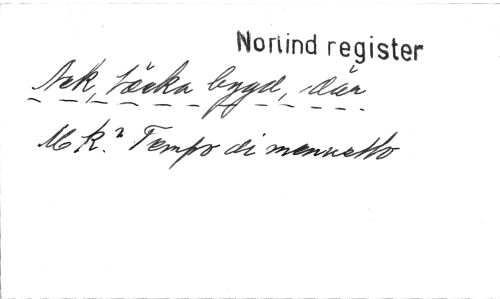 Norlind register
Ack, täcka bygd, där
M k.² Tempo di menuetto